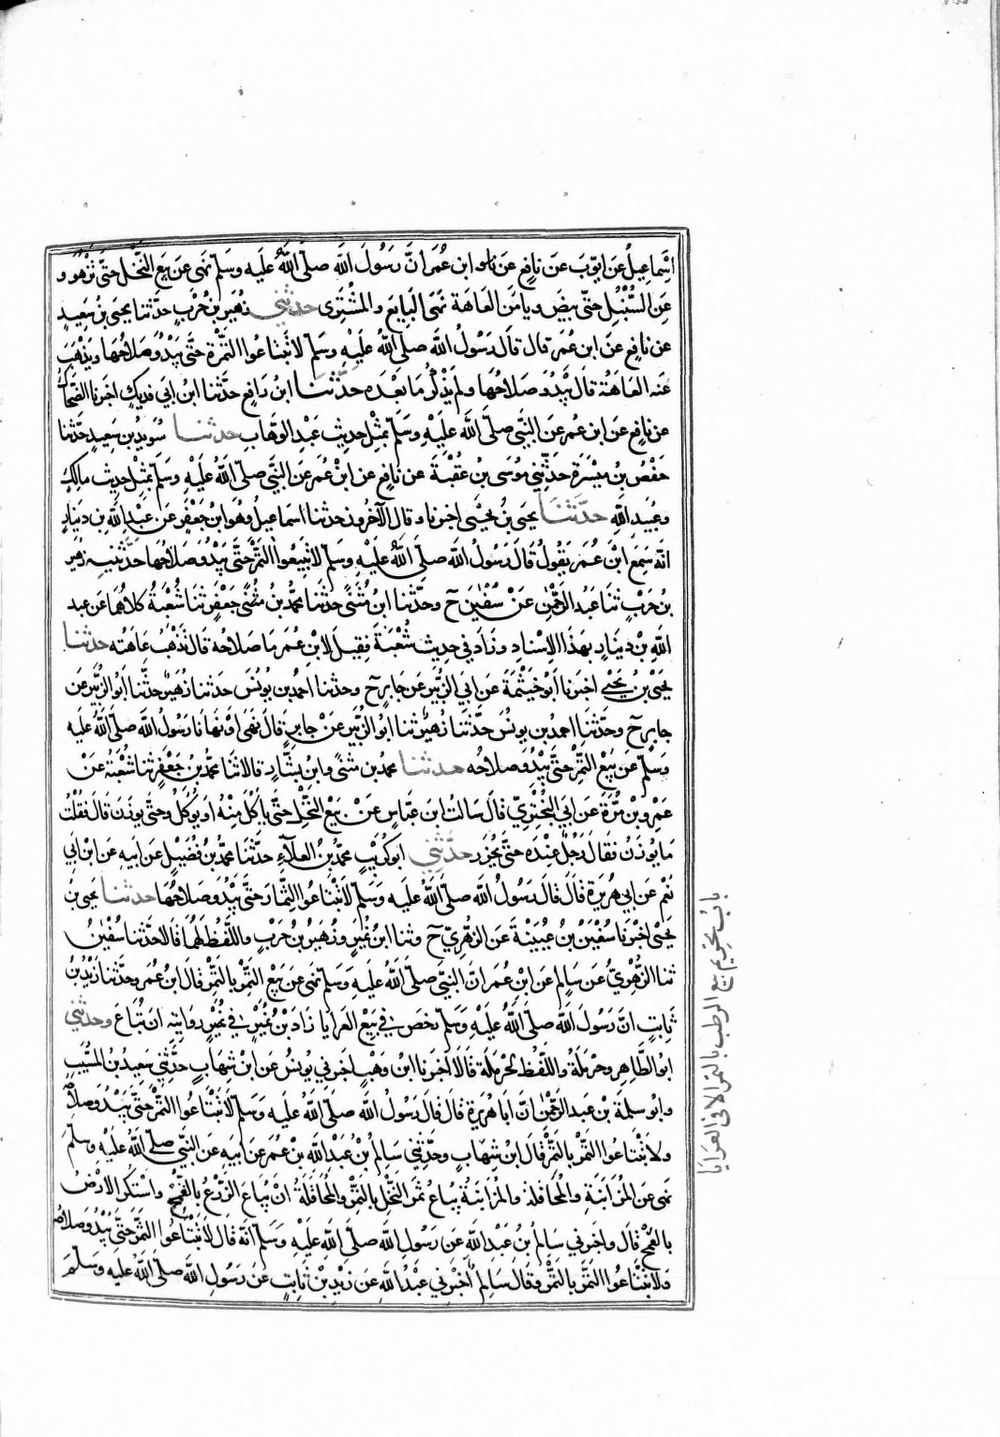 اسماعيل عن ايوب عن نافع عن ابن عمر ان رسول الله صلى الله عليه وسلم نهى عن بيع النخل حتى تزهو و
عن السنبل حتى يبيض ويامن العاهة نهى البايع والمشترى حدثني زهير بن حرب حدثنا يحيى بن سعيد
عن نافع عن ابن عمر قال قال رسول الله صلى الله عليه وسلم لا تبتاعوا الثمرة حتى يبدو صلاحها ويذهب
عنه العاهة قال يبدو صلاحها ولم يذكر ما بعده حدثنا ابن رافع حدثنا ابن ابي فديك اخبرنا الضحاك
عن نافع عن ابن عمر عن النبي صلى الله عليه وسلم بمثل حديث عبد الوهاب حدثنا سويد بن سعيد حدثنا
حفص بن ميسرة حدثني موسى بن عقبة عن نافع عن ابن عمر عن النبي صلى الله عليه وسلم بمثل حديث مالك
وعبيد الله حدثنا يحيى بن يحيى اخبرنا وقال الآخرون حدثنا اسماعيل وهو ابن جعفر عن عبد الله بن دينار
انه سمع ابن عمر يقول قال رسول الله صلى الله عليه وسلم لا تبيعوا الثمر حتى يبدو صلاحها حدثنيه زهير
بن حرب ثنا عبد الرحمن عن سفين ح وحدثنا ابن مثنى حدثنا محمد بن مثنى جعفر ثنا شعبة كلاهما عن عبد
الله بن دينار بهذا الاسناد وزاد في حديث شعبة فقيل لابن عمر ما صلاحه قال تذهب عاهته حدثنا
يحيى بن يحيى اخبرنا ابو خيثمة عن ابي الزبير عن جابر ح وحدثنا احمد بن يونس حدثنا زهير حدثنا ابو الزبير عن
جابر ح وحدثنا احمد بن يونس حدثنا زهير ثنا ابو الزبير عن جابر قال نهى او نهانا رسول الله صلى الله عليه
وسلم عن بيع الثمر حتى يبدو صلاحه حدثنا محمد بن مثنى وابن بشار قالا ثنا محمد بن جعفر ثنا شعبة عن
عمرو بن مرة عن ابي البختري قال سالت ابن عباس عن بيع النخل حتى ياكل منه او يوكل وحتى يوزن قال فقلت
ما يوزن فقال رجل عنده حتى يحزر حدثني ابو كريب محمد بن العلآء حدثنا محمد بن فضيل عن ابيه عن ابن ابي
نعم عن ابي هريرة قال قال رسول الله صلى الله عليه وسلم لا تبتاعوا الثمار حتى يبدو صلاحها حدثنا يحيى بن
يحيى اخبرنا سفين بن عيينة عن الزهري ح وثنا ابن نمير وزهير بن حرب واللفظ لهما قالا حدثنا سفين
ثنا الزهري عن سالم عن ابن عمر ان النبي صلى الله عليه وسلم نهى عن بيع الثمر بالتمر قال ابن عمر وحدثنا زيد بن
ثابت ان رسول الله صلى الله عليه وسلم رخص في بيع العرايا زاد بن نمير في نمير روايته ان تباع وحدثني
ابو الطاهر وحرملة واللفظ لحرملة قالا اخبرنا ابن وهب اخبرني يونس عن ابن شهاب حدثني سعيد بن المسيب
وابو سلمة بن عبد الرحمن ان ابا هريرة قال قال رسول الله صلى الله عليه وسلم لا تبتاعوا الثمر حتى يبدو صلاحه
ولا تبتاعوا الثمر بالتمر قال ابن شهاب وحدثني سالم بن عبد الله بن عمر عن ابيه عن النبي صلى الله عليه وسلم
نهى عن المزابنة والمحاقلة والمزابنة يباع ثمر النخل بالتمر والمحاقلة ان يباع الزرع بالقمح واستكرا الارض
بالقمح قال واخبرني سالم بن عبد الله عن رسول الله صلى الله عليه وسلم انه قال لا تبتاعوا الثمر حتى يبدو صلاحه
ولا تبتاعوا الثمر بالتمر وقال سالم اخبرني عبد الله عن زيد بن ثابت عن رسول الله صلى الله عليه وسلم
باب تحريم بيع الرطب بالتمر الا في العرايا